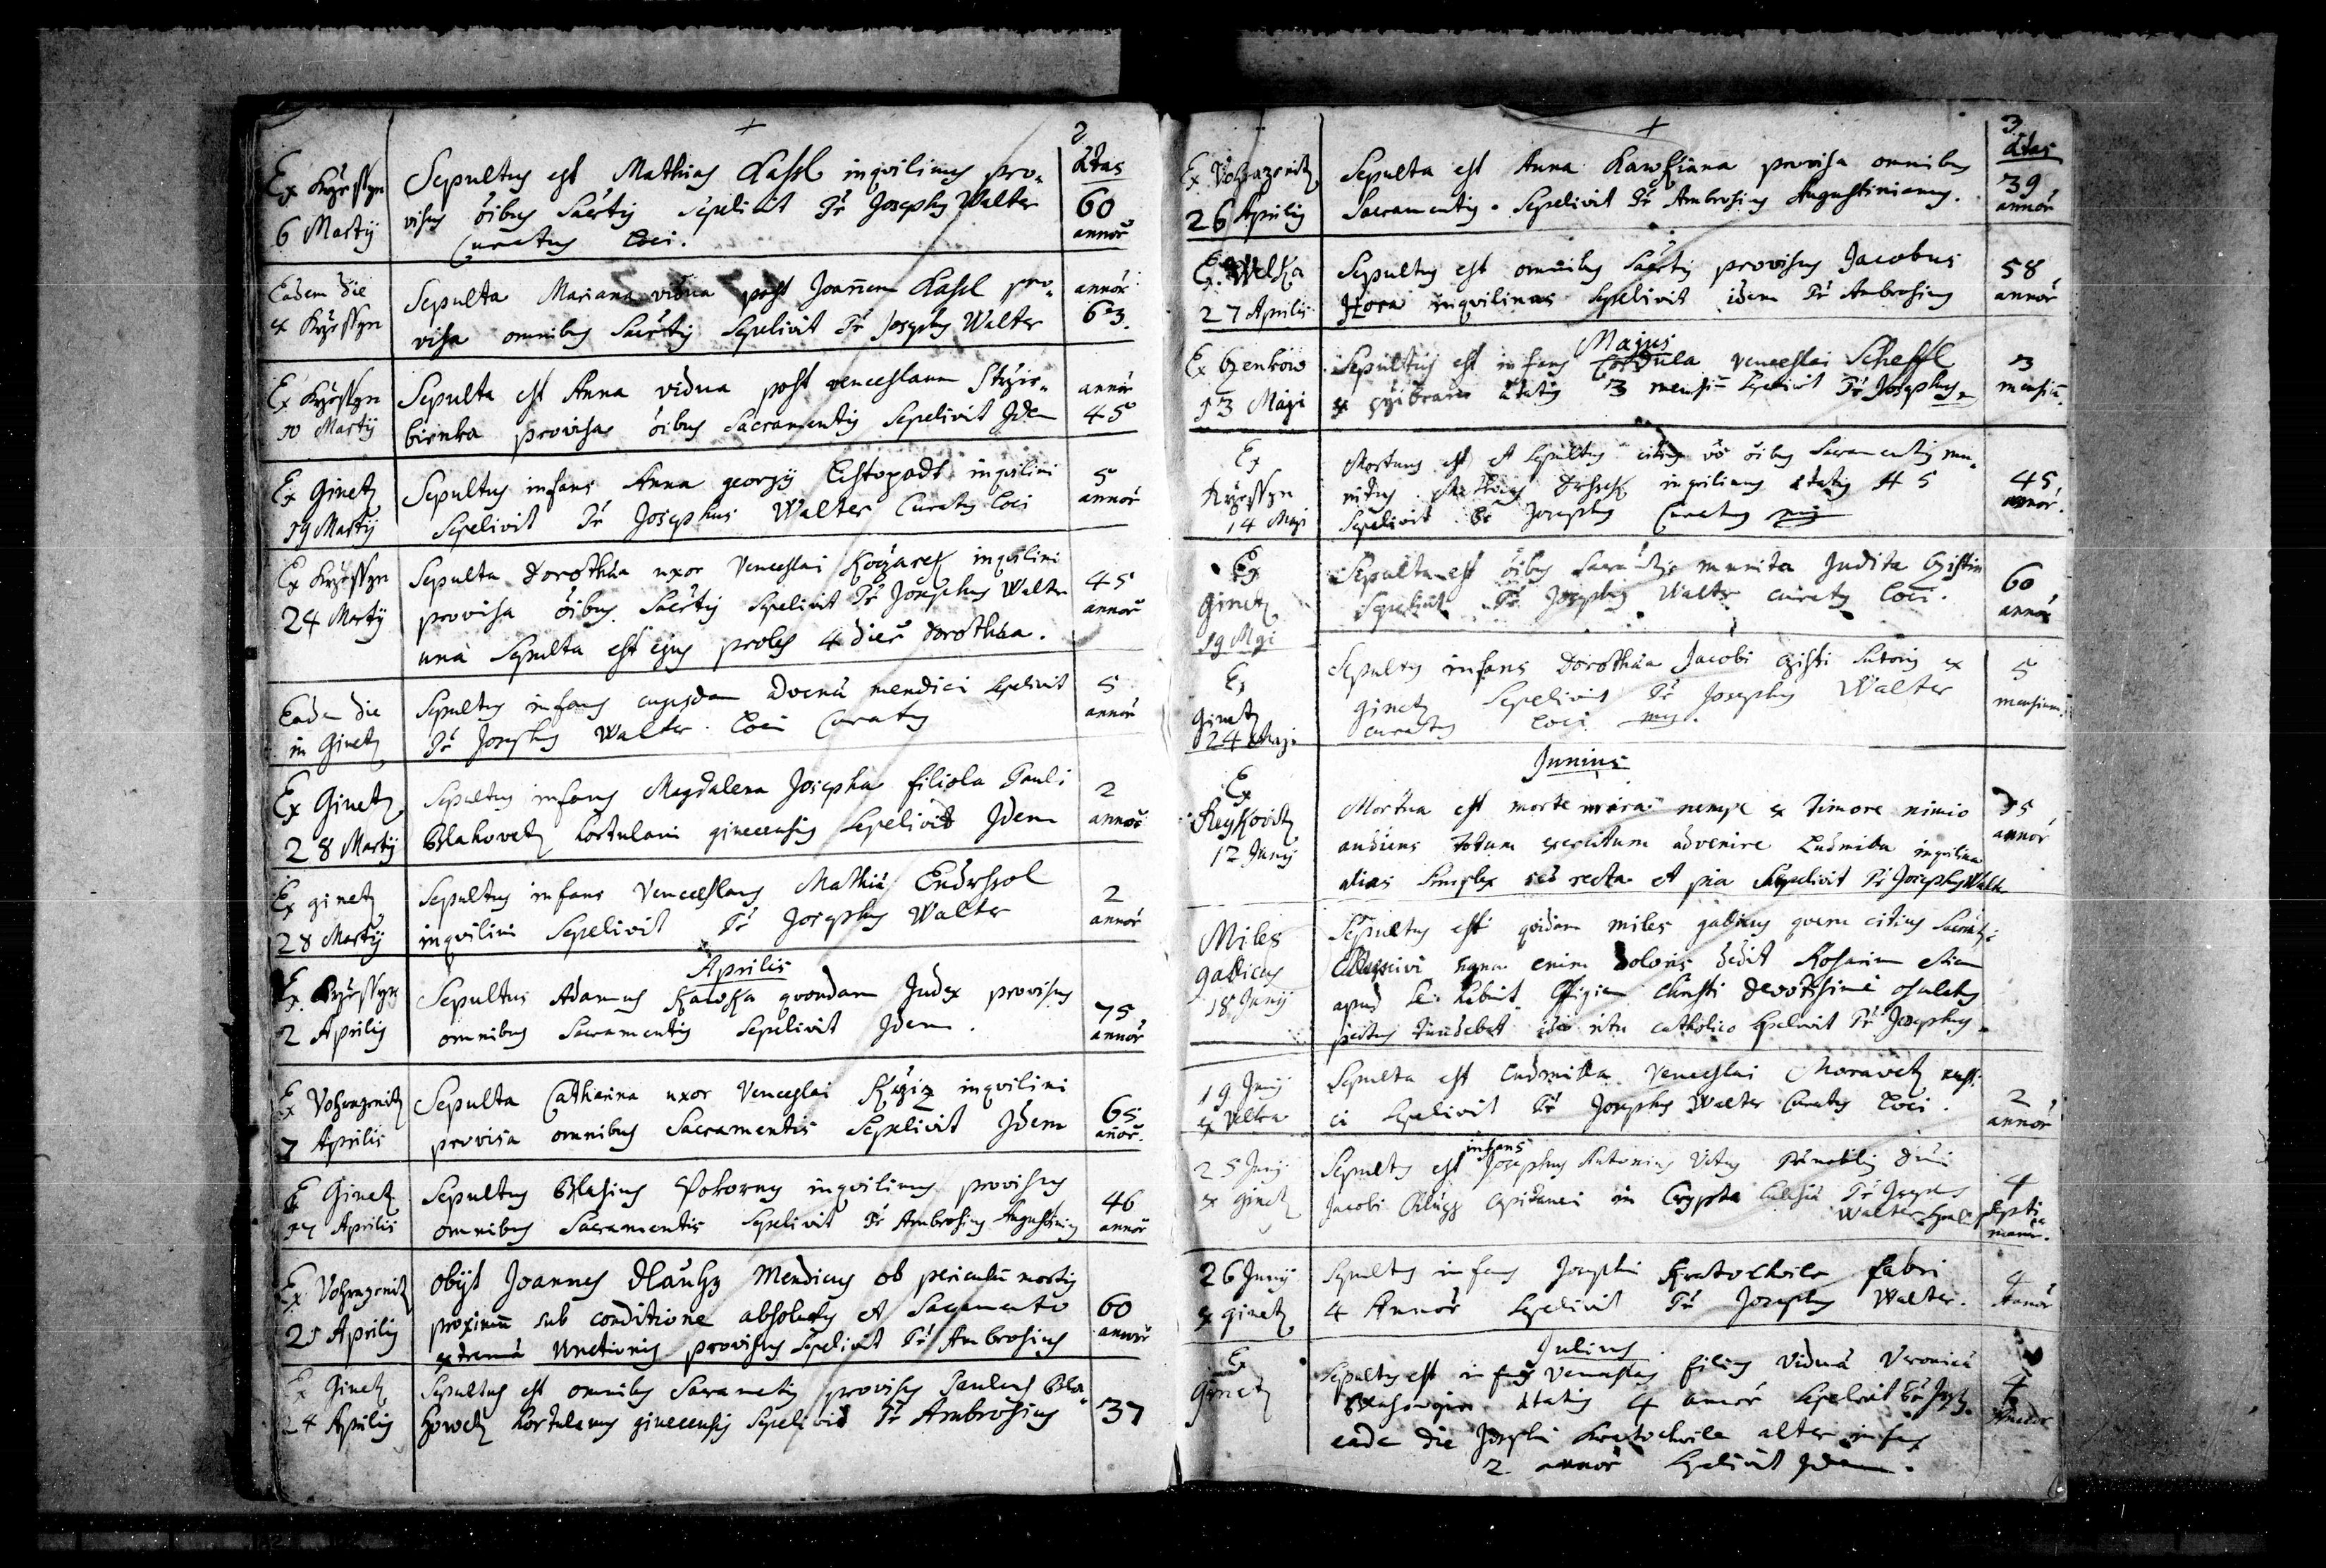 2
Ætas
Ex Krżessyn
6 Martij
Sepultus est Mathias Kassl inqvilinus pro,
visus õibus Sacrtis Sepelivit Pr Josephus Walter
Curatus loci.
60
annor
Eadem die
ex Krżessyn
Sepulta Mariana vidua post Joannem Kassl pro,
visa omnibus Sacrtis Sepelivit Pr Josephus Walter
annor
63.
Ex Krżessyn
10 Martij
Sepulta est Anna vidua post venceslaum
birnka provisa õibus Sacramentis Sepelivit Idem
annor
45
Ex Ginetz
19 Martij
Sepultus infans Anna georgij Listopadt inqvilini
Sepelivit Pr Josephus Walter Curatus loci
5
annor
Ex Krżessyn
24 Martij
Sepulta Dorothæa uxor Venceslai inqvilini
provisa õibus Sacrtis Sepelivit Pr Josephus Walter
una Sepulta est ejus proles 4 dier Dorothæa.
45
annor
Eadem die
in Ginetz
Sepultus infans cujusdam advenæ mendici Sepelivit
Pr Josephus Walter loci Curatus
5
annor
Ex Ginetz
28 Martij
Sepultus infans Magdalena Josepha filiola Pauli
Blahovetz hortulani ginecensis Sepelivit Idem
2
annor
Ex ginetz
28 Martij
Sepultus infans Venceslaus Mathiæ
inqvilini Sepelivit Pr Josephus Walter
2
annor
Aprilis
Ex Krżessyn
2 Aprilis
Sepultus Adamus Kawka qvondam Judex provisus
omnibus Sacramentis Sepelivit Idem.
75
annor
Ex Vohrazenitz
7 Aprilis
Sepulta Catharina uxor Venceslai inqvilini
provisa omnibus Sacramentis Sepelivit Idem
65
annor.
Ex Ginetz
Aprilis
Sepultus Blasius Pokorny inqvilinus provisus
omnibus Sacramentis Sepelivit Pr Ambrosius Augustinia
46
annor
Ex Vohrazenitz
Aprilis
obijt Joannes Dlauhy Mendicus ob periculũ mortis
proximũ sub conditione absolutus et Sacramento
extremæ Unctionis provisus Sepelivit Pr Ambrosius
60
annor
Ex Ginetz
24 Aprilis
Sepultus est omnibus Sacrametis provisus Paulus Bla
howetz hortulanus ginecensis Sepelivit Pr Ambrosius
37
3
Ætas
Ex Vohrazenitz
26 Aprilis
Sepulta est Anna Kawkiana provisa omnibus
Sacramentis. Sepelivit Pr Ambrosius Augustinianus.
39
annor
Ex Welka
27 Aprilis
Sepultus est omnibus Sacrtis provisus Jacobus
Hora inqvilinus Sepelivit idem Pr Ambrosius
58
annor
Majus
Ex
13 Maji
Sepultus est infans Cordula Venceslai Scheffl
ex ætatis 3 mensiũ Sepelivit Pr Josephus
3
mensiũ.
Ex
Krżessyn
14 Maji
Mortuus est et Sepultus õibus Sacramentis mu,
nitus Mathias inqvilinus ætatis 45
Sepelivit Pr Josephus Curatus
45
annor.
Ex
Ginetz
19 Maji
Sepulta est õibus Sacrmtis munita Judita
Sepelivit Pr Josephus Walter curatus loci.
60
annor
Ex
Ginetz
24 Maji
Sepultus infans Dorothæa Jacobi Sutoris ex
ginetz Sepelivit Pr Josephus Walter
curatus loci
5
mensium.
Junius
Ex
12 Junij
Mortua est morte mira nempe ex timore nimio
audiens totum exercitum advenire Ludmila inqvilina
alias Simplex sed recta et pia Sepelivit Pr Josephus Walter
annor
Miles
gallicus
18 Junij
Sepultus est qvidam miles gallicus qvem citius
signa enim doloris dedit Rosarium etiam
apud se habuit Effigiem Christi devotissime osculatus
pectus tundebat ideo ritu catholico Sepelivit Pr Josephus
19 Junij
ex Velka
Sepulta est Ludmilla Venceslai Moravetz rusti
ci Sepelivit Pr Josephus Walter Curatus loci.
2
annor
25 Junij
ex Ginetz
Sepultus est infans Josephus Antonius Vitus Prænobilis Dñi
Jacobi Capitanei in Crypta Pr Josephus
Walter
4
Septi
manar.
26 Junij
ex ginetz
Sepultus infans Josephi Kratochvile fabri
4 Annor Sepelivit Pr Josephus Walter.
4
Annor
Julius
Ex
Ginetz
Sepultus est infans Venceslaus filius Viduæ Veronicæ
ætatis 4 annor Sepelivit Pr Josephus
4
Annor
eadem die Josephi Kratochvile alter infans
2 annor Sepelivit Idem.